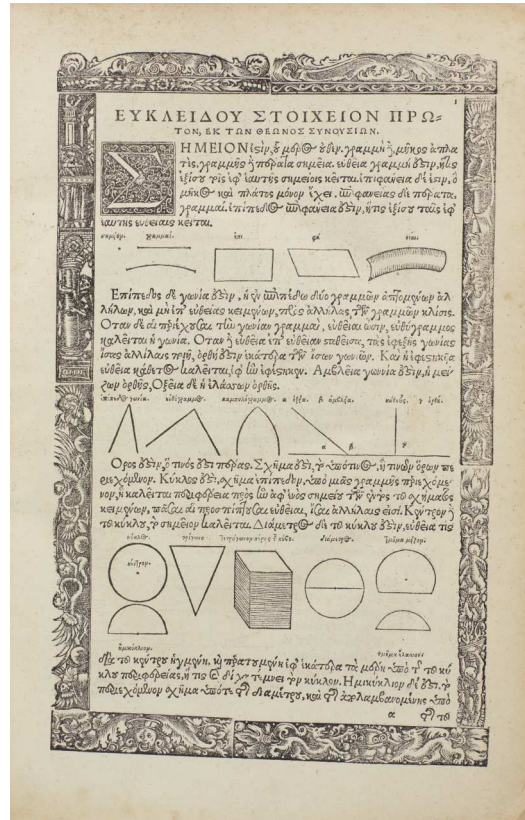 1
ΕΥΚΛΕΙΔΟΥ ΣΤΟΙΧΕΙΟΝ ΠΡΩ=
ΤΟΝ, ΕΚ ΤΩΝ ΘΕΩΝΟΣ ΣΥΝΟΥΣΙΩΝ.
ΣΗΜΕΙΟΝ ἐστιν, οὗ μέρος οὐθέν. γραμμὴ δὲ, μῆκος ἀπλα
τές. γραμμῆς δὲ πέρατα σημεῖα. εὐθεῖα γραμμή ἐστιν, ἥτις
ἐξίσου τοῖς ἐφ' ἑαυτῆς σημείοις κεῖται. ἐπιφάνεια δέ ἐστιν, ὃ
μῆκος καὶ πλάτος μόνον ἔχει. ἐπιφανείας δὲ πέρατα,
γραμμαί. ἐπίπεδος ἐπιφάνειά ἐστιν, ἥτις ἐξίσου ταῖς ἐφ'
ἑαυτῆς εὐθείαις κεῖται.
σημεῖον. γραμμαί. ἐπι φά νειαι.
Επίπεδος δὲ γωνία ἐστὶν, ἡ ἐν ἐπιπέδῳ δύο γραμμῶν ἁπτομένων ἀλ
λήλων, καὶ μὴ ἐπ' εὐθείας κειμένων, πρὸς ἀλλήλας τῶν γραμμῶν κλίσις.
Οταν δὲ αἱ περιέχουσαι τὴν γωνίαν γραμμαὶ, εὐθεῖαι ὦσιν, εὐθύγραμμος
καλεῖται ἡ γωνία. Οταν δὲ εὐθεῖα ἐπ' εὐθεῖαν σταθεῖσα, τὰς ἐφεξῆς γωνίας
ἴσας ἀλλήλαις ποιῇ, ὀρθή ἐστιν ἑκατέρα τῶν ἴσων γωνιῶν. Καὶ ἡ ἐφεστηκυῖα
εὐθεῖα κάθετος καλεῖται, ἐφ' ἣν ἐφέστηκεν. Αμβλεῖα γωνία ἐστὶν, ἡ μεί
ζων ὀρθῆς. Οξεῖα δὲ ἡ ἐλάσσων ὀρθῆς.
ἐπίπεδος γωνία. εὐθύγραμμος. καμπυλόγραμμος. α ὀξεῖα. β ἀμβλεῖα. κάθετος. γ ὀρθή.
α β γ
Ορος ἐστὶν, ὅ τινός ἐστι πέρας. Σχῆμά ἐστι, τὸ ὑπό τινος, ἤ τινων ὅρων πε
ριεχόμενον. Κύκλος ἐστὶ, σχῆμα ἐπίπεδον, ὑπὸ μιᾶς γραμμῆς περιεχόμε-
νον, ἣ καλεῖται περιφέρεια πρὸς ἣν ἀφ' ἑνὸς σημείου τῶν ἐντὸς τοῦ σχήματος
κειμένων, πᾶσαι αἱ προσπίπτουσαι εὐθεῖαι, ἴσαι ἀλλήλαις εἰσί. Κέντρον δὲ
τοῦ κύκλου, τὸ σημεῖον καλεῖται. Διάμετρος δὲ τοῦ κύκλου ἐστὶν, εὐθεῖά τις
κύκλος. τρίγωνον διάμετρος. τμῆμα μεῖζον.
κέντρον.
ἡμικύκλιον. τμῆμα ἔλασσον.
διὰ τοῦ κέντρου ἠγμένη, καὶ περατουμένη ἐφ' ἑκάτερα τὰ μέρη ὑπὸ τῆς τοῦ κύ
κλου περιφερείας, ἥτις καὶ δίχα τέμνει τὸν κύκλον. Ημικύκλιον δέ ἐστι, τὸ
περιεχόμενον σχῆμα ὑπό τε τῆς διαμέτρου, καὶ τῆς ἀπολαμβανομένης ὑπὸ
α τῆς τοῦ